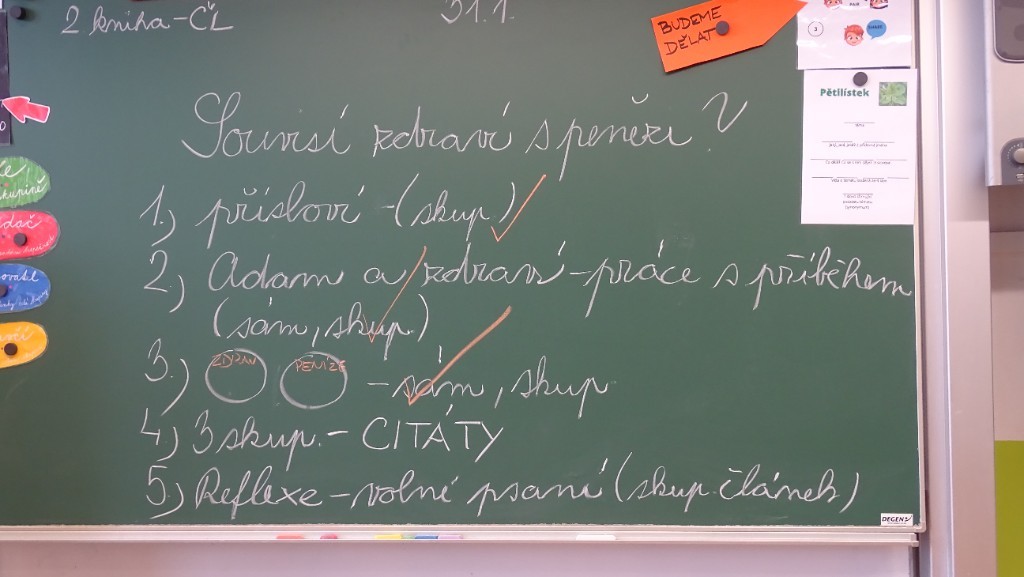 2 kniha - ČL
31.1.
BUDEME
DĚLAT
Souvisí zdraví s penězi?
1.) přísloví - (skup)
2.) Adam a zdraví - práce s příběhem
(sám, skup.)
3.) ZDRAV PENÍZE - sám, skup
4.) 3 skup. - CITÁTY
5.) Reflexe - volné psaní (skup. článek)
Pětilístek
3
SHARE
DEGEN